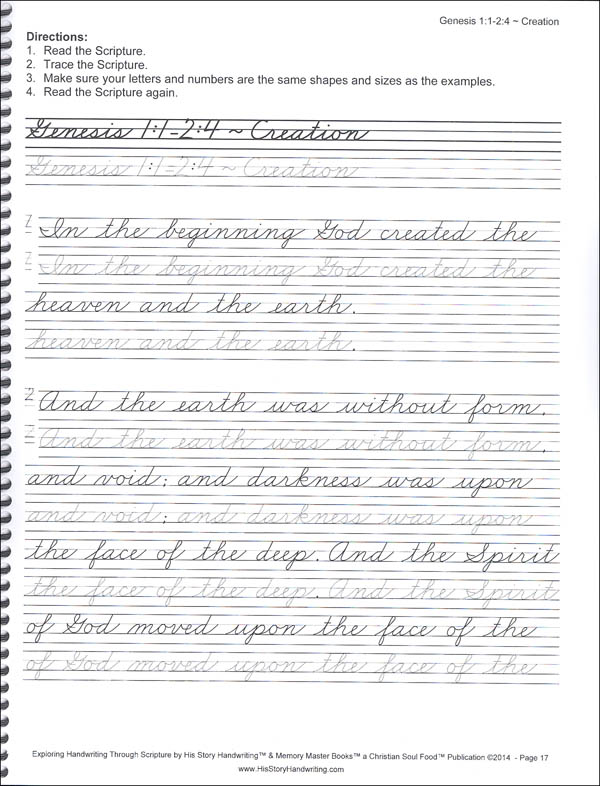 Genesis 1:1-2:4 ~ Creation
Directions:
1. Read the Scripture.
2. Trace the Scripture.
3. Make sure your letters and numbers are the same shapes and sizes as the examples.
4. Read the Scripture again.
Genesis 1:1-2:4 ~ Creation
Genesis 1:1-2:4 ~ Creation
1 In the beginning God created the
1 In the beginning God created the
heaven and the earth.
heaven and the earth.
2 And the earth was without form,
2 And the earth was without form,
and void; and darkness was upon
and void; and darkness was upon
the face of the deep. And the Spirit
the face of the deep. And the Spirit
of God moved upon the face of the
of God moved upon the face of the
Exploring Handwriting Through Scripture by His Story Handwriting™ & Memory Master Books™ a Christian Soul Food™ Publication ©2014 - Page 17
www.HisStoryHandwriting.com